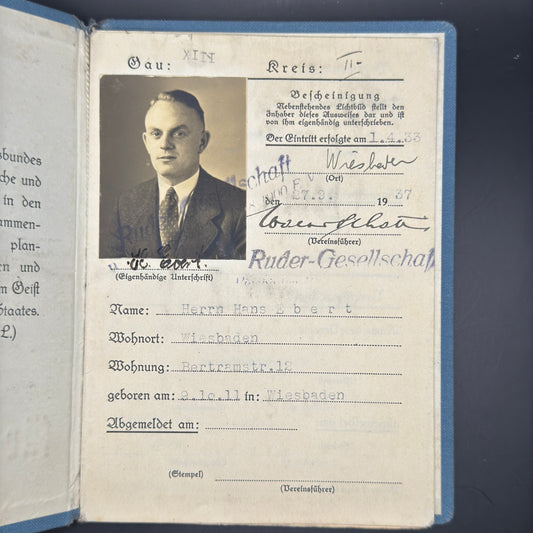 sbundes
che und
in den
ammen-
plan-
en und
m Geist
Staates.
L.)
Gau: XIII Kreis: II-
Bescheinigung
Nebenstehendes Lichtbild stellt den
Inhaber dieses Ausweises dar und ist
von ihm eigenhändig unterschrieben.
Der Eintritt erfolgte am 1.4.33
Wiesbaden
(Ort)
den 27.9. 1937
(Vereinsführer)
Ruder-Gesellschaft
H. Ebert.
(Eigenhändige Unterschrift)
Name: Herrn Hans Ebert
Wohnort: Wiesbaden
Wohnung: Bertramstr.18
geboren am: 9.10.11 in: Wiesbaden
Abgemeldet am:
(Stempel)
(Vereinsführer)